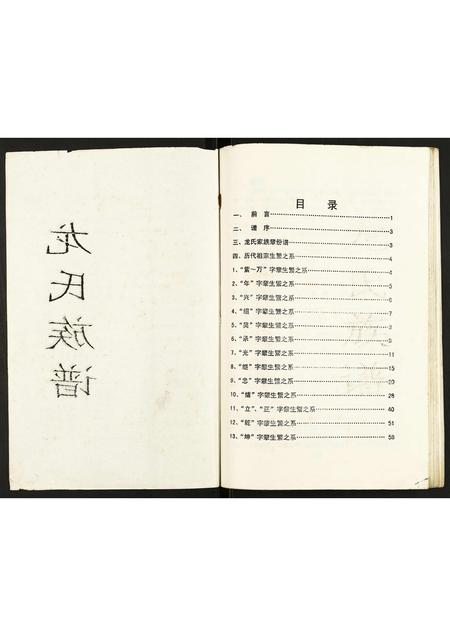 龙氏族谱
目录
一、前言……1
二、谱序……3
三、龙氏家族辈份谱……3
四、历代祖宗生繁之系……4
1、“紫～万”字辈生繁之系……4
2、“年”字辈生繁之系……5
3、“兴”字辈生繁之系……6
4、“绍”字辈生繁之系……7
5、字辈生繁之系……8
6、“承”字辈生繁之系……9
7、“光”字辈生繁之系……11
8、“继”字辈生繁之系……15
9、“忠”字辈生繁之系……20
10、字辈生繁之系……28
11、“立”、“正”字辈生繁之系……40
12、“乾”字辈生繁之系……51
13、“坤”字辈生繁之系……58